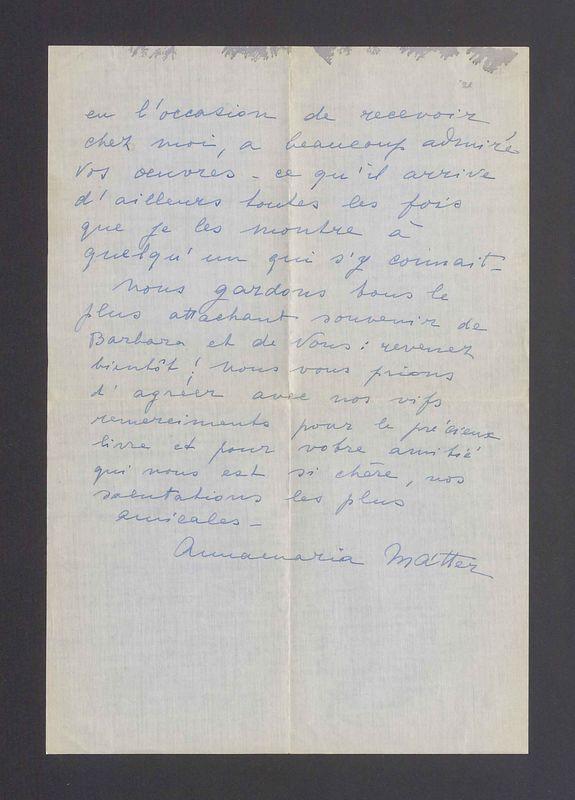 eu l'occasion de recevoir
chez moi, a beaucoup admiré
vos oeuvres - ce qu'il arrive
d'ailleurs toutes les fois
que je les montre à
quelqu'un qui s'y connait -
Nous gardons tous le
plus attachant souvenir de
Barbara et de Vous : revenez
bientôt ! Nous vous prions
d'agréer avec nos vifs
remerciments pour le précieux
livre et pour votre amitié
qui nous est si chère, nos
salutations les plus
amicales -
Annamaria